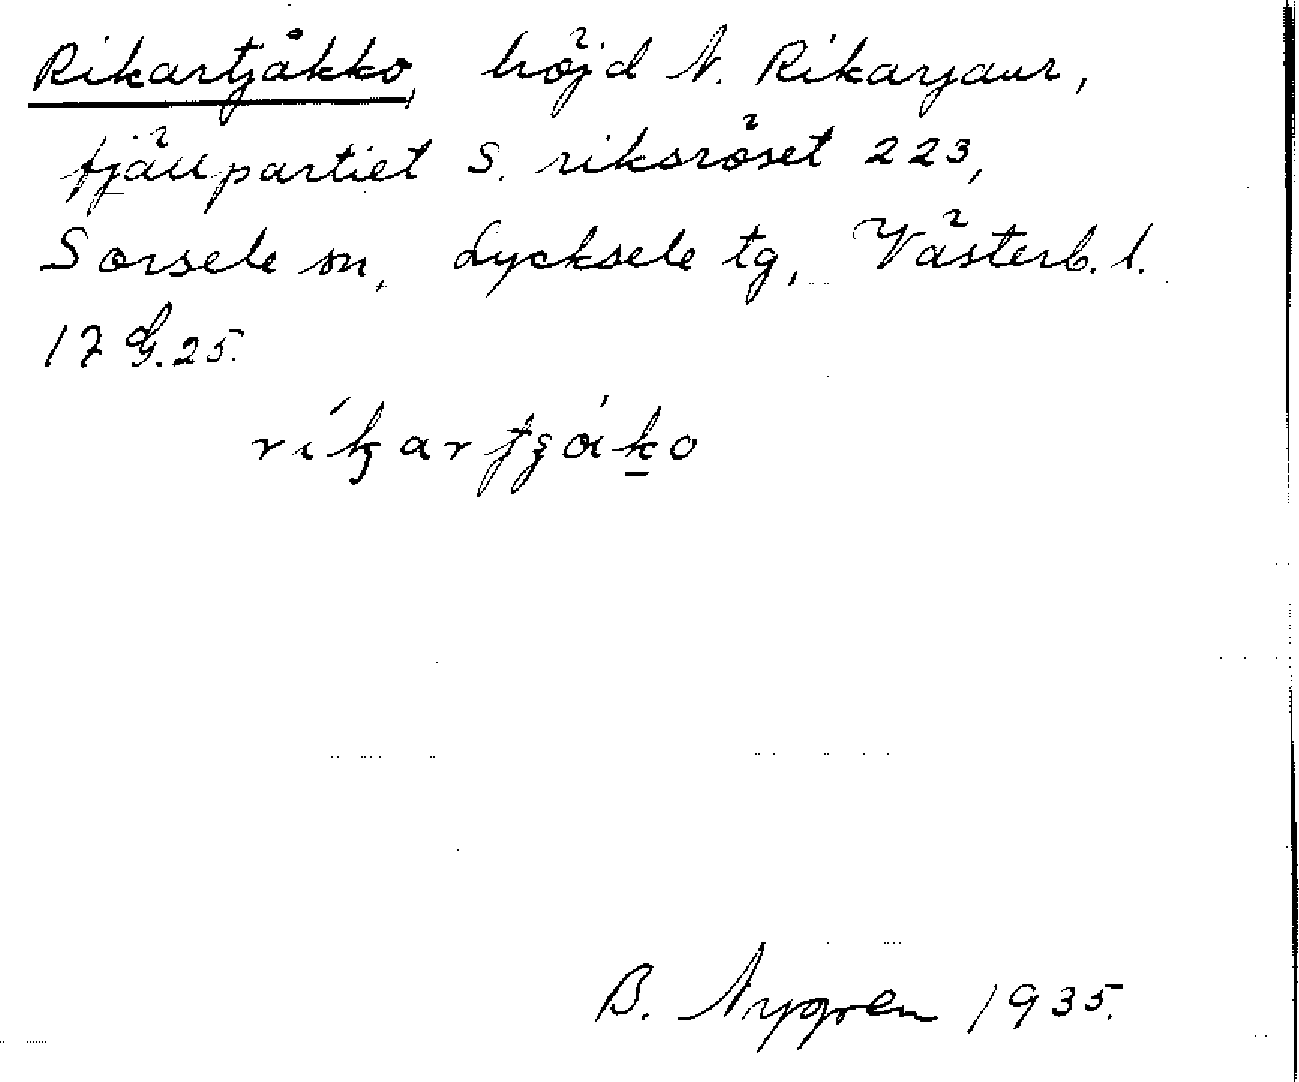 Rikartjåkko, höjd N. Rikarjaur,
fjällpartiet S. riksröset 223,
Sorsele sn, Lycksele tg, Västerb. l.
17 G. 25.
B. Nygren 1935.